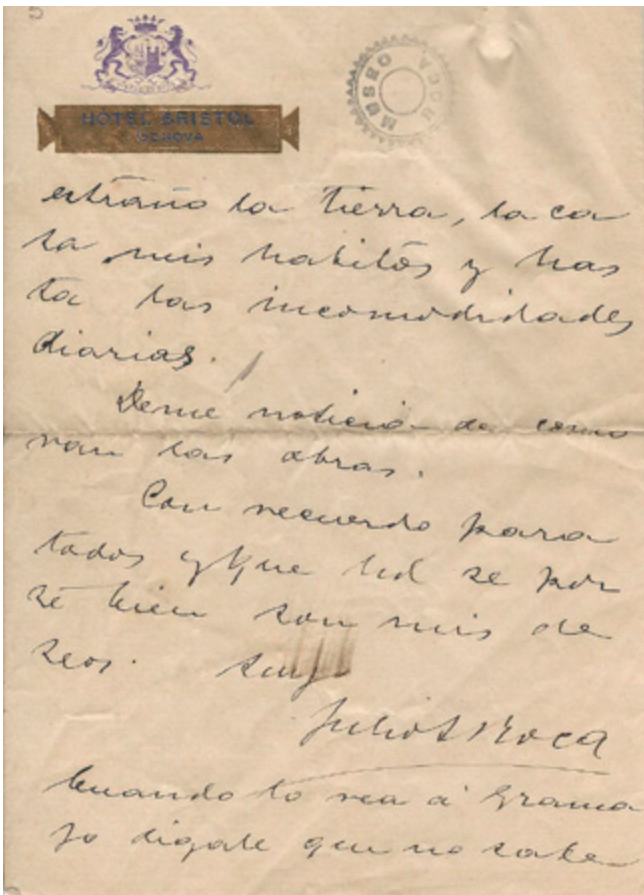 5
HOTEL BRISTOL
GENOVA
MUSEO ROCA
extraño la tierra, la ca
sa, mis habitos y has
ta las incomodidades
diarias.
Deme noticia de como
van las obras.
Con recuerdo para
todos y que Ud se por
te bien son mis de
seos. Suyo
Julio A Roca
Cuando lo vea á Grama
jo digale que no sabe